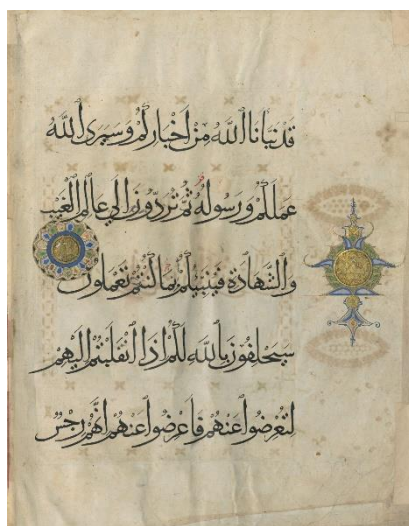 قَدْ نَبَّأَنَا اللَّهُ مِنْ أَخْبَارِكُمْ وَسَيَرَى اللَّهُ
عَمَلَكُمْ وَرَسُولُهُ ثُمَّ تُرَدُّونَ إِلَى عَالِمِ الْغَيْبِ
وَالشَّهَادَةِ فَيُنَبِّئُكُمْ بِمَا كُنْتُمْ تَعْمَلُونَ
سَيَحْلِفُونَ بِاللَّهِ لَكُمْ إِذَا انْقَلَبْتُمْ إِلَيْهِمْ
لِتُعْرِضُوا عَنْهُمْ فَأَعْرِضُوا عَنْهُمْ إِنَّهُمْ رِجْسٌ